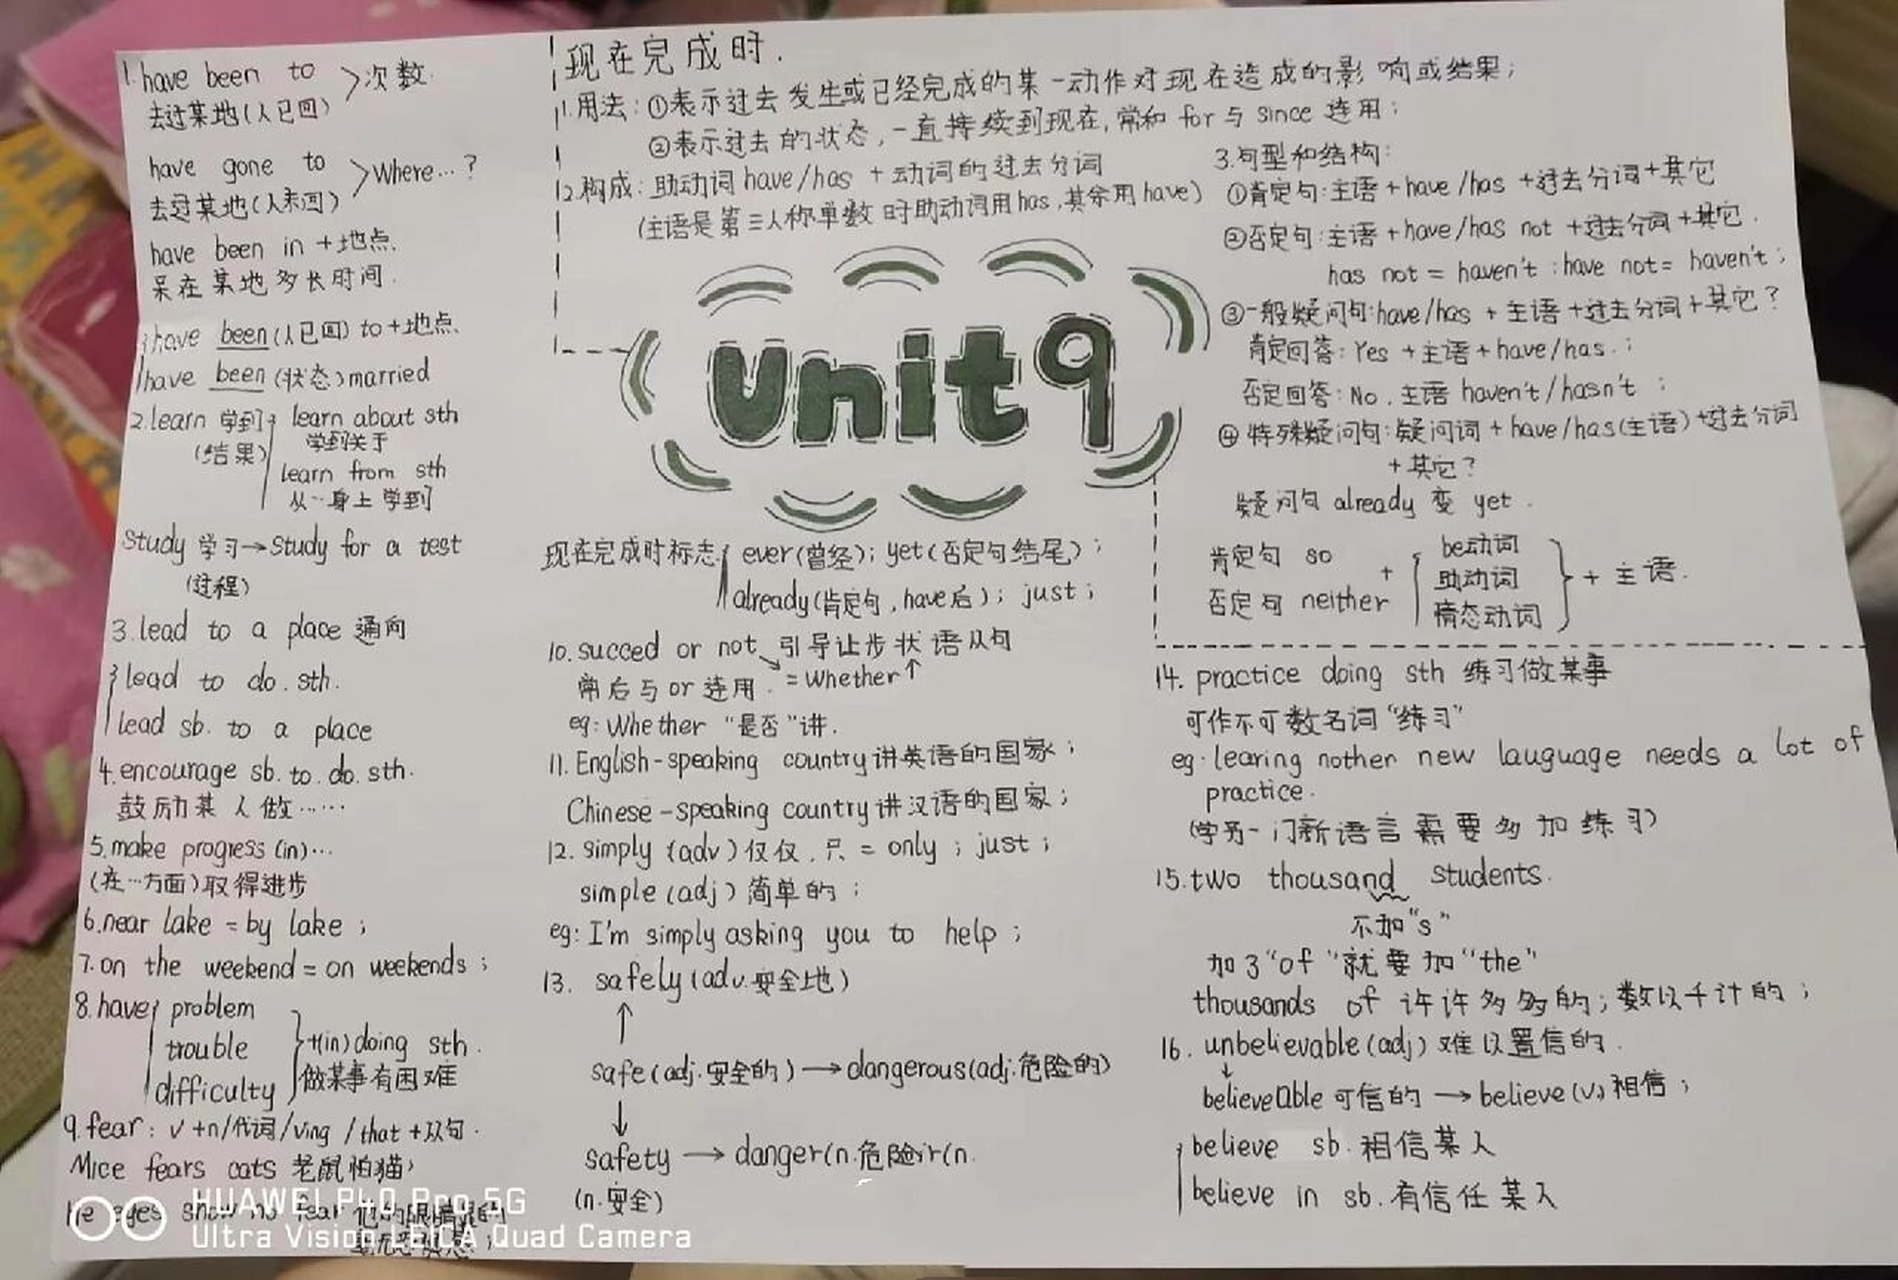 1. have been to
去过某地(人已回)
次数
have gone to
去过某地(人未回)
Where…?
have been in + 地点
呆在某地多长时间.
have been (人已回) to + 地点
have been (状态) married
2. learn 学到
(结果)
learn about sth
学到关于
learn from sth
从…身上学到
Study 学习→Study for a test
(过程)
3. lead to a place 通向
lead to do. sth.
lead sb. to a place
4. encourage sb. to. do. sth.
鼓励某人做……
5. make progress (in)…
(在…方面)取得进步
6. near lake = by lake ;
7. on the weekend = on weekends ;
8. have
problem
trouble
difficulty
+(in) doing sth.
做某事有困难
9. fear: v +n/代词/ving /that +从句.
Mice fears cats 老鼠怕猫
He eyes show no fear 他的眼睛里的
现在完成时.
1.用法: ①表示过去发生或已经完成的某一动作对现在造成的影响或结果;
②表示过去的状态, 一直持续到现在, 常和 for 与 since 连用;
2.构成: 助动词 have/has + 动词的过去分词
(主语是第三人称单数时助动词用has, 其余用have)
Unit9
现在完成时标志
ever(曾经); yet(否定句结尾);
already(肯定句, have后); just;
10. succed or not 引导让步状语从句
常后与or连用. = Whether
eg: Whether "是否"讲.
11. English-speaking country 讲英语的国家;
Chinese-speaking country 讲汉语的国家;
12. simply (adv) 仅仅. 只 = only ; just ;
simple (adj) 简单的 ;
eg: I'm simply asking you to help ;
13. safely (adv. 安全地)
↑
safe (adj. 安全的) → dangerous (adj. 危险的)
↓
safety → danger (n. 危险
(n. 安全)
3.句型和结构:
①肯定句: 主语 + have /has + 过去分词 + 其它
②否定句: 主语 + have/has not + 过去分词 + 其它.
has not = haven't ; have not = haven't ;
③一般疑问句: have/has + 主语 + 过去分词 + 其它?
肯定回答: Yes + 主语 + have/has. ;
否定回答: No. 主语 haven't / hasn't ;
④特殊疑问句: 疑问词 + have/has (主语) + 过去分词
+ 其它?
疑问句 already 变 yet.
肯定句 so
否定句 neither
+
be动词
助动词
情态动词
+ 主语.
14. practice doing sth 练习做某事
可作不可数名词"练习"
eg: learing nother new lauguage needs a lot of
practice.
(学另一门新语言需要多加练习)
15. two thousand students.
不加"s"
加了"of"就要加"the"
thousands of 许许多多的; 数以千计的;
16. unbelievable (adj) 难以置信的.
↓
believeable 可信的 → believe (v.) 相信;
believe sb. 相信某人
believe in sb. 有信任某人
HUAWEI P40 Pro 5G
Ultra Vision LEICA Quad Camera